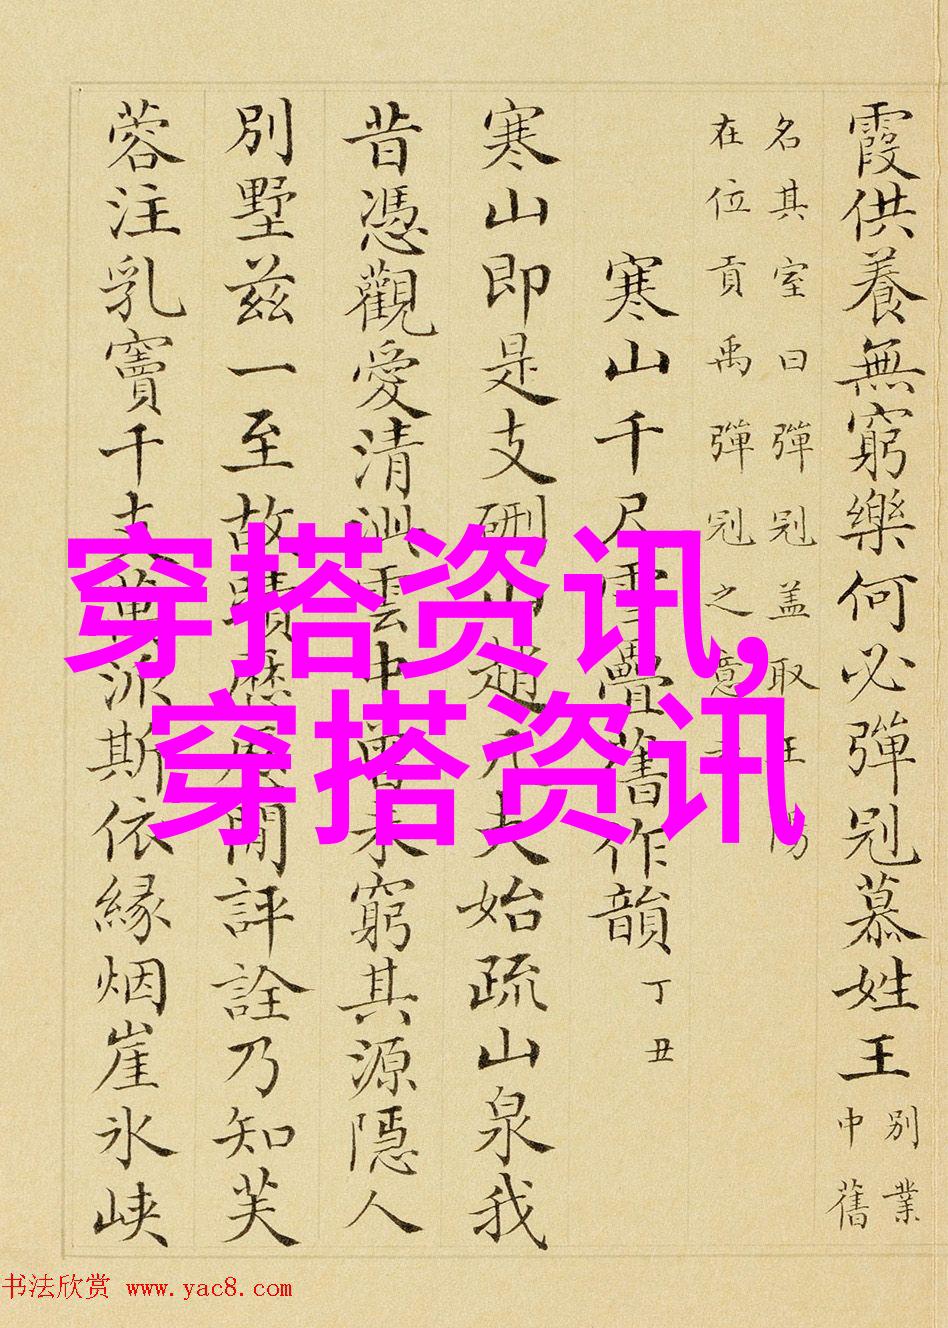 霞供養無窮樂何必彈冠慕姓王 別業
中舊
名其室曰彈冠盖取王陽
在位貢禹彈冠之意
寒山千尺雪疊舊作韻 丁丑
寒山即是支硎山趙凡夫始疏山泉我
昔憑觀愛清泚雲中曾未窮其源隱人
別墅茲一至故蹟歷歷閒評詮乃知芙
蓉注乳竇千支萬派斯依緣烟崖氷峽
穿搭资讯,
穿搭资讯
书法欣赏 www.yac8.com